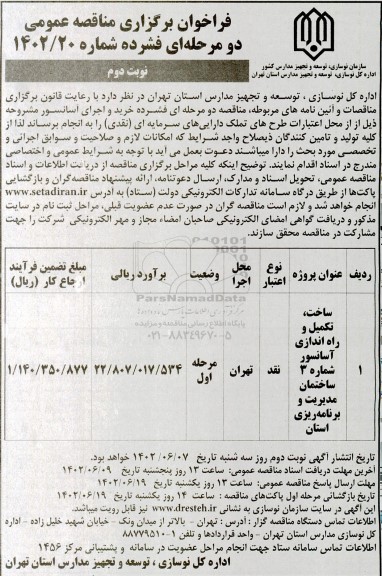 فراخوان برگزاری مناقصه عمومی
دو مرحله‌ای فشرده شماره ۱۴۰۲/۲۰
سازمان نوسازی، توسعه و تجهیز مدارس کشور
اداره کل نوسازی، توسعه و تجهیز مدارس استان تهران
نوبت دوم
اداره کل نوسـازی ، توسـعه و تجهیز مدارس اسـتان تهران در نظر دارد با رعایت قانون برگزاری
مناقصات و آئین نامه های مربوطه، مناقصه دو مرحله ای فشـرده خرید و اجرای آسانسور مشروحه
ذیل را از محل اعتبارات طرح های تملک دارایی‌های سـرمایه ای (نقدی) را به انجام برساند لذا از
کلیه تولید و تامین کنندگان ذیصلاح واجد شـرایط که امکانات لازم و صلاحیت و سوابق اجرائی و
تخصصـی مورد بحث را دارا میباشـند دعـوت بعمل می آید با توجه به شـرایط عمومی و اختصاصی
مندرج در اسـناد اقدام نمایند. توضیح اینکه کلیه مراحل برگزاری مناقصه از دریافت اطلاعات و اسناد
مناقصه عمومی، تحویل اسـناد و مدارک، ارسـال دعوتنامه، ارائه پیشنهاد مناقصه‌گران و بازگشایی
پاکت‌ها از طریق درگاه سـامانه تدارکات الکترونیکی دولت (سـتاد) به آدرس www.setadiran.ir
انجام خواهد شـد و لازم است مناقصه گران در صورت عدم عضویت قبلی، مراحل ثبت نام در سایت
مذکور و دریافت گواهی امضای الکترونیکی صاحبان امضاء مجاز و مهر الکترونیکی شرکت را جهت
مشارکت در مناقصه محقق سازند.
ردیف عنوان پروژه نوع اعتبار محل اجرا وضعیت برآورد ریالی مبلغ تضمین فرآیند ارجاع کار (ریال)
۱ ساخت، تکمیل و راه اندازی آسانسور شماره ۳ ساختمان مدیریت و برنامه‌ریزی استان نقد تهران مرحله اول ۲۲/۸۰۷/۰۱۷/۵۳۴ ۱/۱۴۰/۳۵۰/۸۷۷
ParsNamadData
۰۲۱-۸۸۳۴۹۶۷۰-۵
تاریخ انتشار آگهی نوبت دوم روز سه شنبه تاریخ ۱۴۰۲/۰۶/۰۷ خواهد بود.
آخرین مهلت دریافت اسناد مناقصه عمومی: ساعت ۱۳ روز پنجشنبه تاریخ ۱۴۰۲/۰۶/۰۹
مهلت ارسال پاسخ مناقصه عمومی: ساعت ۱۳ روز یکشنبه تاریخ ۱۴۰۲/۰۶/۱۹
تاریخ بازگشائی مرحله اول پاکت‌های مناقصه : ساعت ۱۴ روز یکشنبه تاریخ ۱۴۰۲/۰۶/۱۹
این آگهی در سایت سازمان نوسازی به نشانی www.dresteh.ir نیز قابل رویت میباشد.
اطلاعات تماس دستگاه مناقصه گزار : آدرس : تهران - بالاتر از میدان ونک - خیابان شهید خلیل زاده - اداره
کل نوسازی مدارس استان تهران - واحد قراردادها و تلفن ۱-۸۸۷۷۹۵۱۰
اطلاعات تماس سامانه ستاد جهت انجام مراحل عضویت در سامانه و پشتیبانی مرکز ۱۴۵۶
اداره کل نوسازی ، توسعه و تجهیز مدارس استان تهران